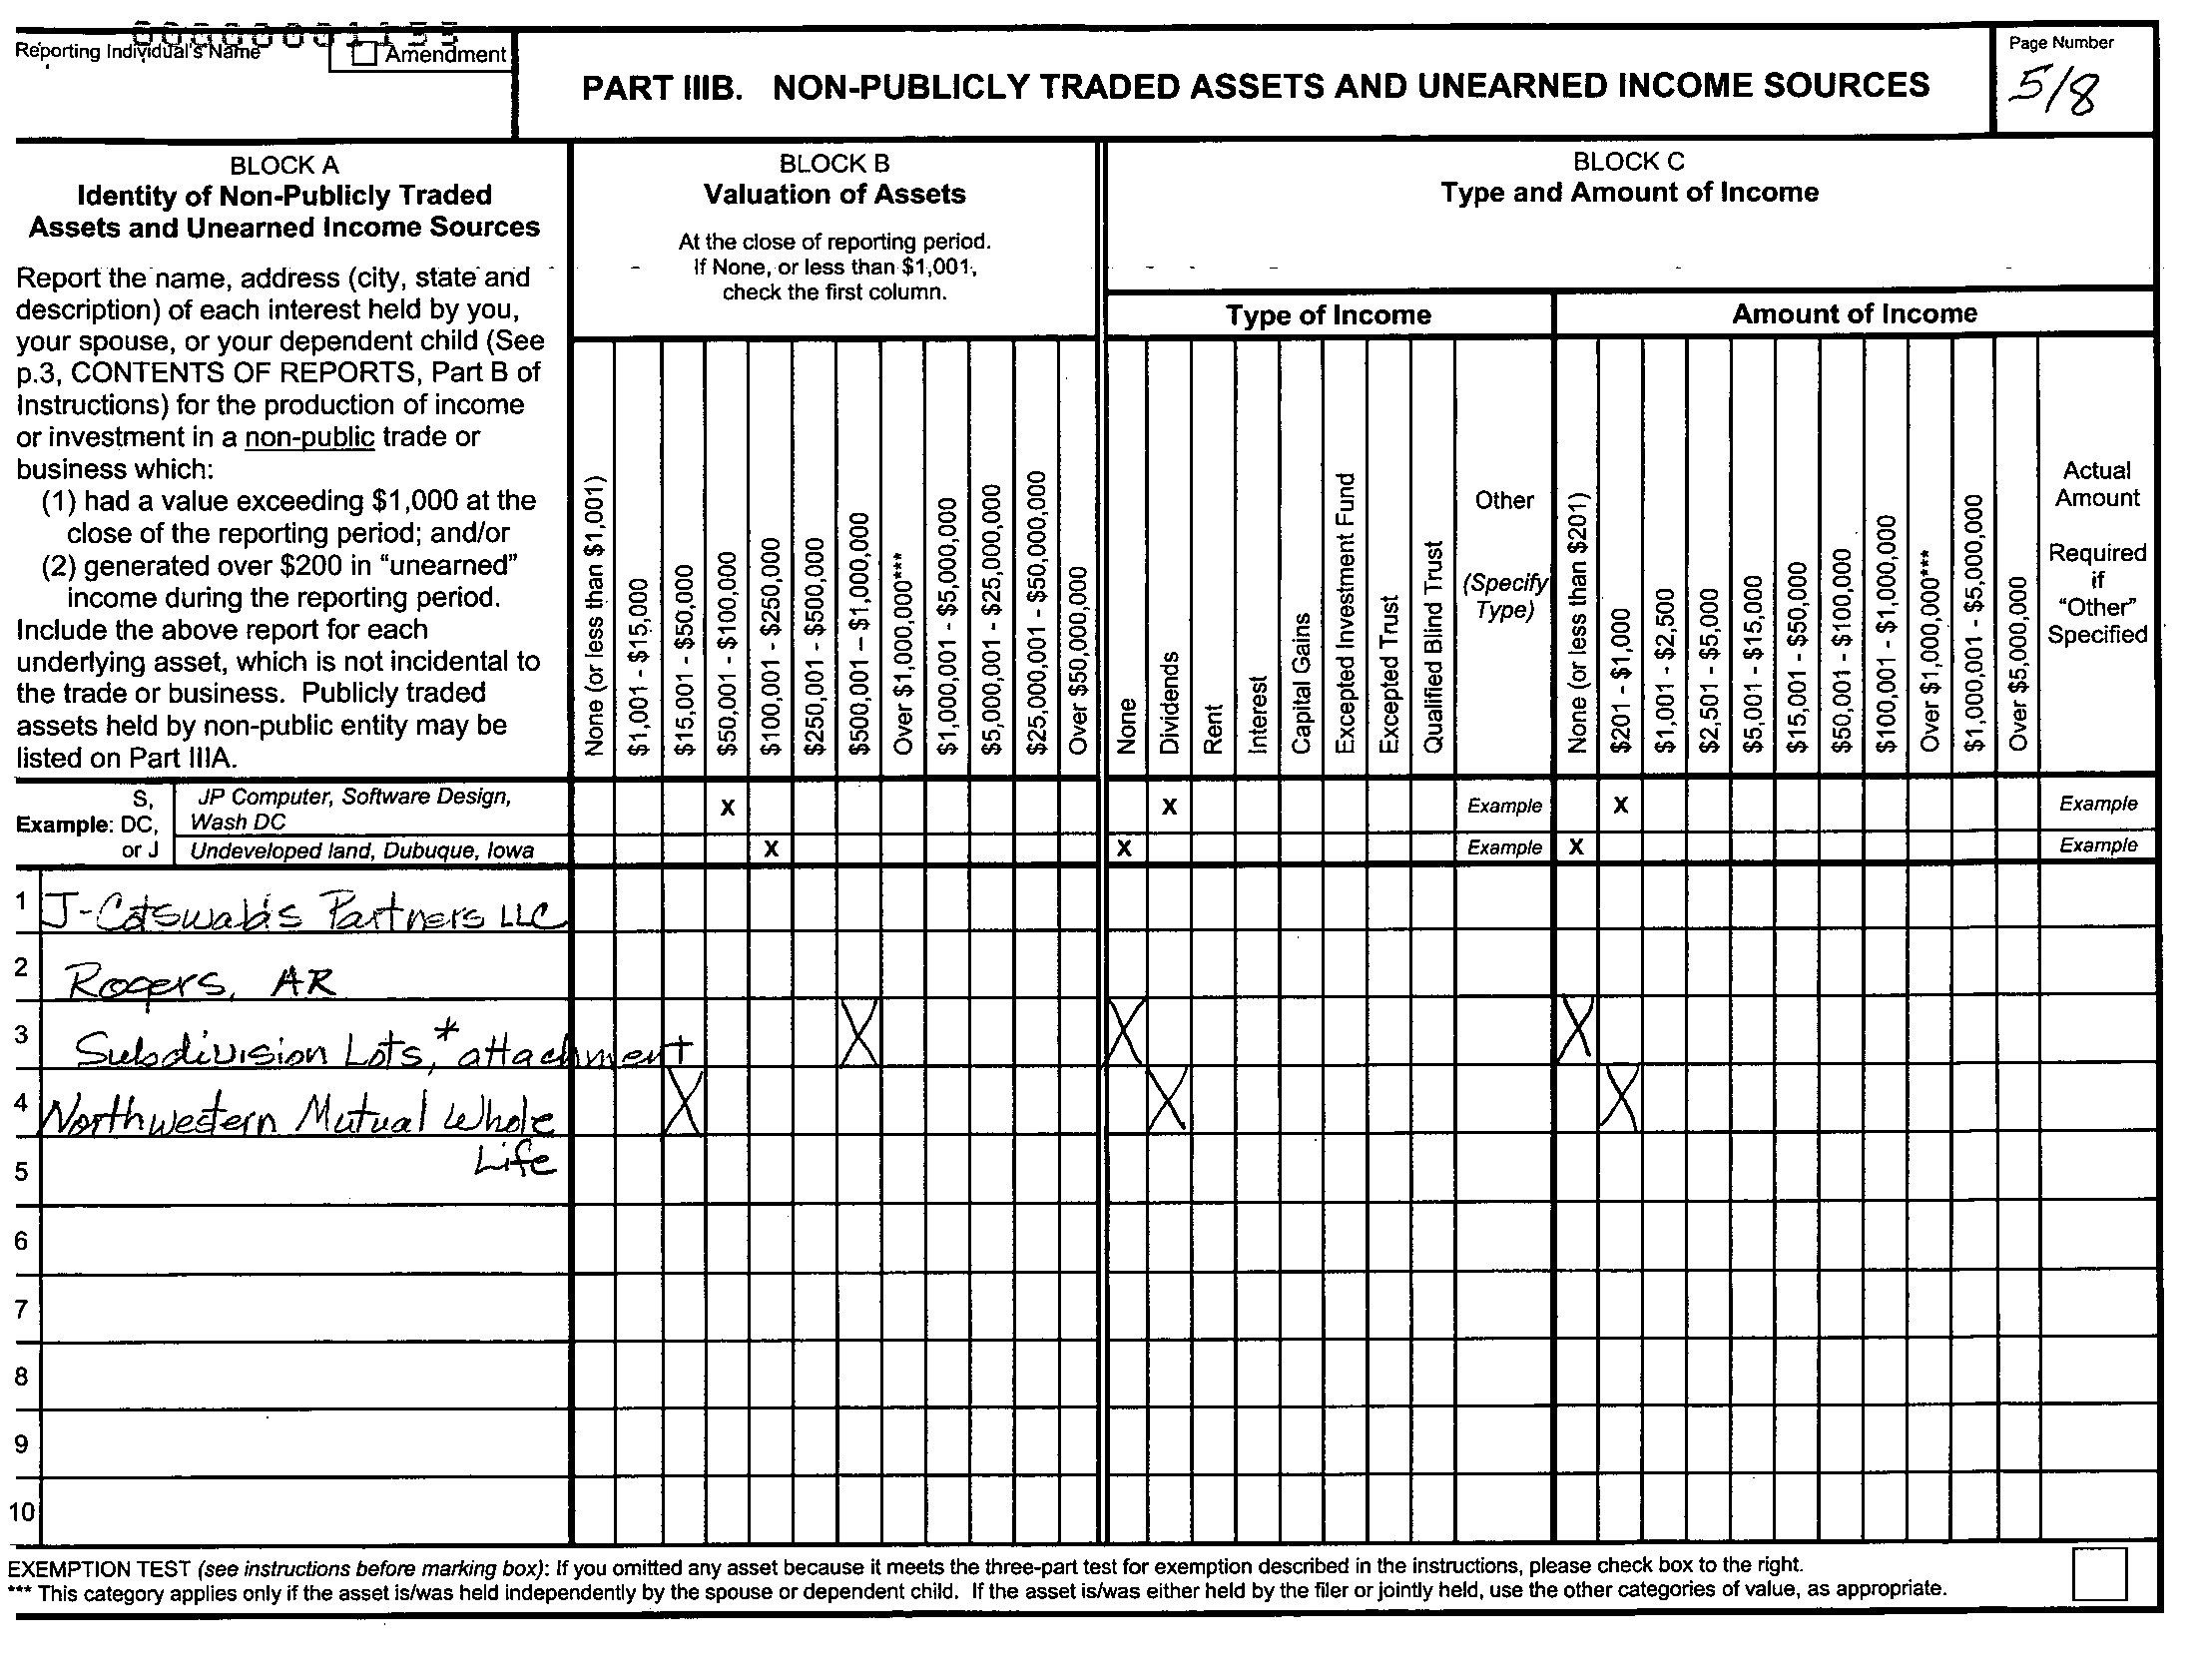 000000001155
Reporting Individual's Name
Amendment
PART IIIB. NON-PUBLICLY TRADED ASSETS AND UNEARNED INCOME SOURCES
Page Number
5/8
BLOCK A
Identity of Non-Publicly Traded
Assets and Unearned Income Sources
Report the name, address (city, state and
description) of each interest held by you,
your spouse, or your dependent child (See
p.3, CONTENTS OF REPORTS, Part B of
Instructions) for the production of income
or investment in a non-public trade or
business which:
(1) had a value exceeding $1,000 at the
close of the reporting period; and/or
(2) generated over $200 in "unearned"
income during the reporting period.
Include the above report for each
underlying asset, which is not incidental to
the trade or business. Publicly traded
assets held by non-public entity may be
listed on Part IIIA.
BLOCK B
Valuation of Assets
At the close of reporting period.
If None, or less than $1,001,
check the first column.
None (or less than $1,001)
$1,001 - $15,000
$15,001 - $50,000
$50,001 - $100,000
$100,001 - $250,000
$250,001 - $500,000
$500,001 – $1,000,000
Over $1,000,000***
$1,000,001 - $5,000,000
$5,000,001 - $25,000,000
$25,000,001 - $50,000,000
Over $50,000,000
BLOCK C
Type and Amount of Income
Type of Income
None
Dividends
Rent
Interest
Capital Gains
Excepted Investment Fund
Excepted Trust
Qualified Blind Trust
Other
(Specify
Type)
Amount of Income
None (or less than $201)
$201 - $1,000
$1,001 - $2,500
$2,501 - $5,000
$5,001 - $15,000
$15,001 - $50,000
$50,001 - $100,000
$100,001 - $1,000,000
Over $1,000,000***
$1,000,001 - $5,000,000
Over $5,000,000
Actual
Amount
Required
if
"Other"
Specified
Example:
S,
DC,
or J
JP Computer, Software Design,
Wash DC
X X Example X Example
Undeveloped land, Dubuque, Iowa X X Example X Example
1 J- Partners LLC
2 Rogers, AR
3 Subdivision Lots,* attachment X X X
4 Northwestern Mutual Whole X X X
5 Life
6
7
8
9
10
EXEMPTION TEST (see instructions before marking box): If you omitted any asset because it meets the three-part test for exemption described in the instructions, please check box to the right.
*** This category applies only if the asset is/was held independently by the spouse or dependent child. If the asset is/was either held by the filer or jointly held, use the other categories of value, as appropriate.